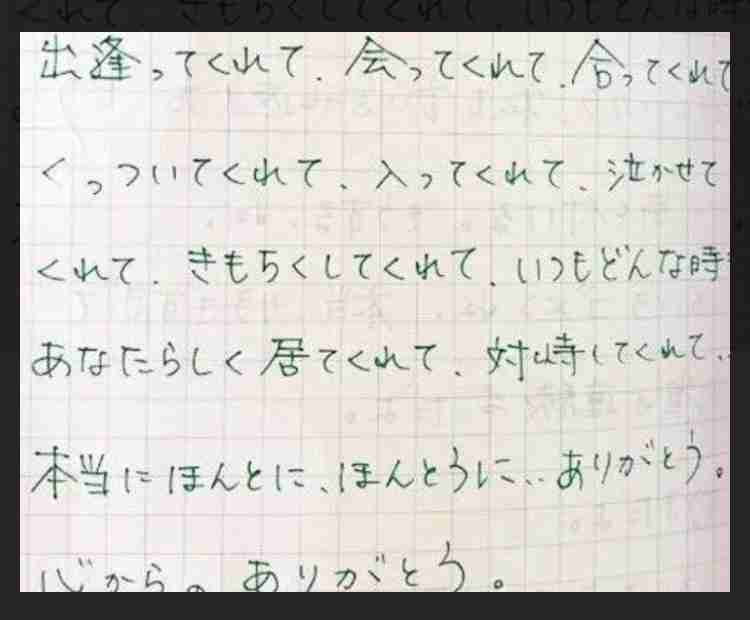 出逢ってくれて、会ってくれて、合ってくれて
くっついてくれて、入ってくれて、泣かせて
くれて、きもちくしてくれて、いつもどんな時
あなたらしく居てくれて、対峙してくれて、
本当にほんとに、ほんとうに、、ありがとう。
心から。ありがとう。